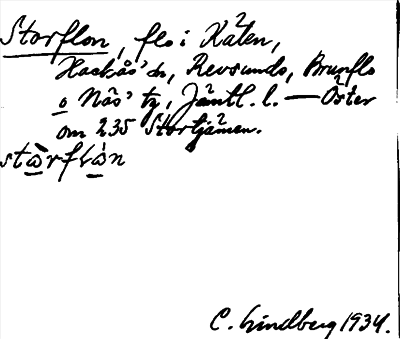 Storflon, flo i Kälen,
Hackås' sn, Revsunds, Brunflo
o Näs' tg, Jämtl. l. — Öster
om 235 Stortjärnen.
stɷ̀rflɷ̀n
C. Lindberg 1934.